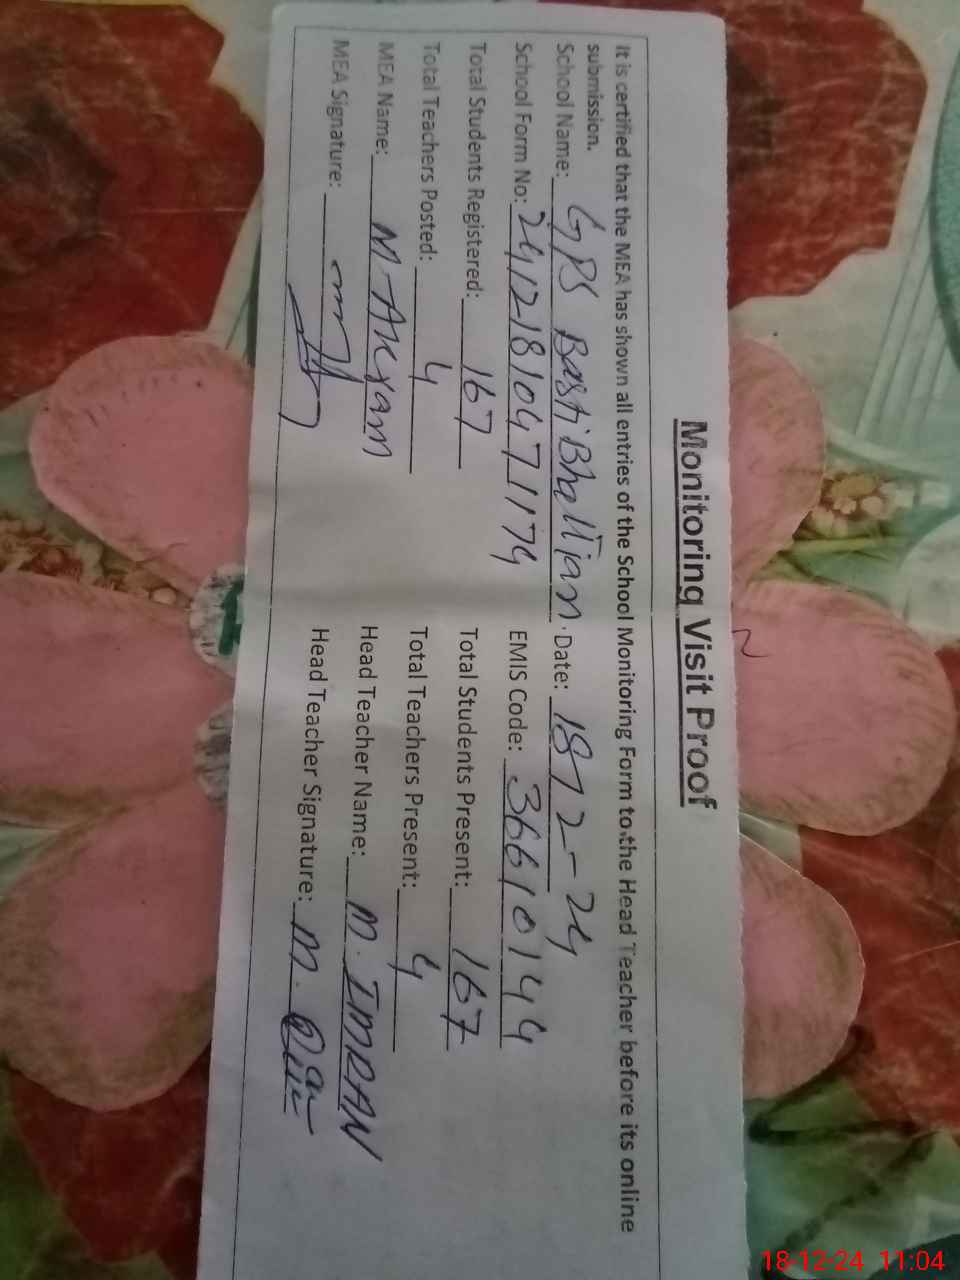 Monitoring Visit Proof
It is certified that the MEA has shown all entries of the School Monitoring Form to the Head Teacher before its online
submission.
School Name: GPS Basti Bhattian. Date: 18-12-24
School Form No: 24121810471174 EMIS Code: 36610144
Total Students Registered: 167 Total Students Present: 167
Total Teachers Posted: 4 Total Teachers Present: 4
MEA Name: M-Akram Head Teacher Name: M. IMRAN
MEA Signature: Head Teacher Signature: M.
18-12-24 11:04